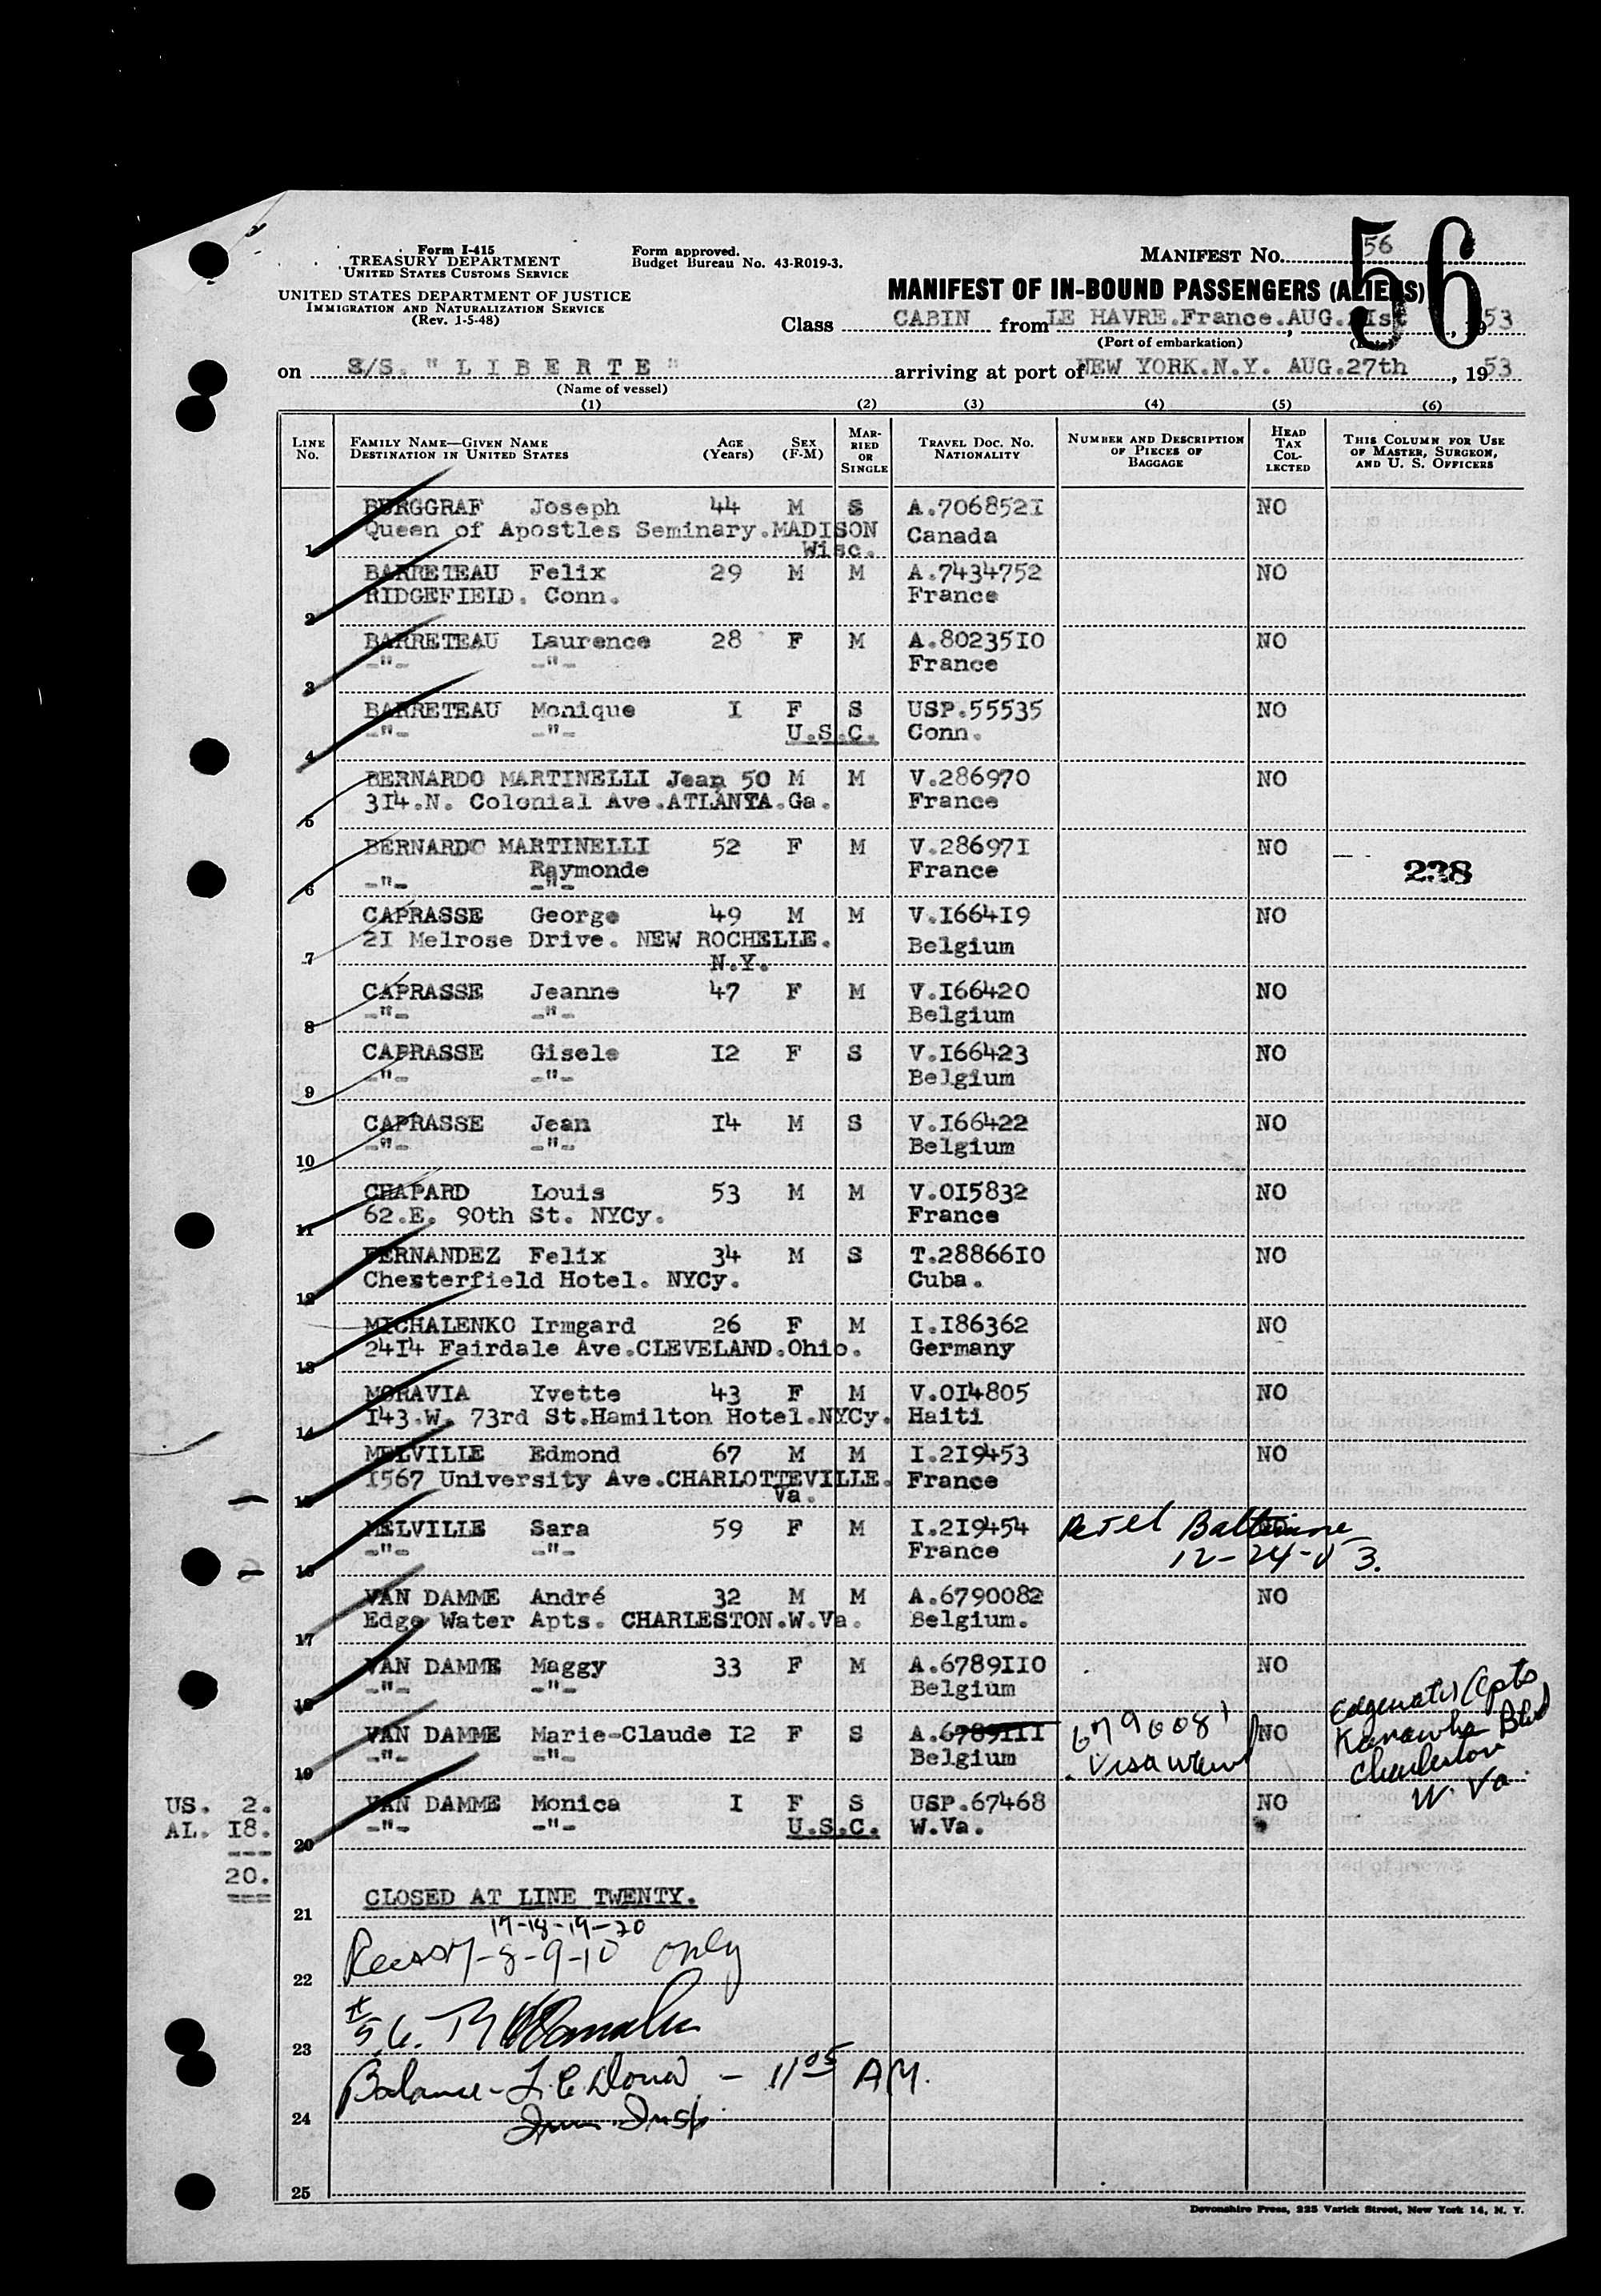 Form I-415
TREASURY DEPARTMENT
UNITED STATES CUSTOMS SERVICE
UNITED STATES DEPARTMENT OF JUSTICE
IMMIGRATION AND NATURALIZATION SERVICE
(Rev. 1-5-48)
Form approved.
Budget Bureau No. 43-R019-3.
MANIFEST NO. 56
56
MANIFEST OF IN-BOUND PASSENGERS (ALIENS)
Class CABIN from LE HAVRE.France. AUG. 21st, 1953
(Port of embarkation) (Date)
on S/S. "LIBERTE" arriving at port of NEW YORK.N.Y. AUG.27th, 1953
(Name of vessel)
(1) (2) (3) (4) (5) (6)
LINE No. FAMILY NAME—GIVEN NAME DESTINATION IN UNITED STATES AGE (Years) SEX (F-M) MARRIED OR SINGLE TRAVEL DOC. NO. NATIONALITY NUMBER AND DESCRIPTION OF PIECES OF BAGGAGE HEAD TAX COLLECTED THIS COLUMN FOR USE OF MASTER, SURGEON, AND U. S. OFFICERS
BURGGRAF Joseph 44 M S A.7068521 NO
Queen of Apostles Seminary.MADISON Canada
1 Wisc.
BARRETEAU Felix 29 M M A.7434752 NO
2 RIDGEFIELD. Conn. France
BARRETEAU Laurence 28 F M A.8023510 NO
3 -"- -"- France
BARRETEAU Monique I F S USP.55535 NO
4 -"- -"- U.S.C. Conn.
BERNARDO MARTINELLI Jean 50 M M V.286970 NO
5 314.N. Colonial Ave.ATLANTA.Ga. France
BERNARDO MARTINELLI 52 F M V.286971 NO
Raymonde France 238
6 -"- -"-
CAPRASSE George 49 M M V.166419 NO
21 Melrose Drive. NEW ROCHELLE. Belgium
7 N.Y.
CAPRASSE Jeanne 47 F M V.166420 NO
8 -"- -"- Belgium
CAPRASSE Gisele 12 F S V.166423 NO
9 -"- -"- Belgium
CAPRASSE Jean 14 M S V.166422 NO
10 -"- -"- Belgium
CHAPARD Louis 53 M M V.015832 NO
11 62.E. 90th St. NYCy. France
FERNANDEZ Felix 34 M S T.2886610 NO
12 Chesterfield Hotel. NYCy. Cuba.
MICHALENKO Irmgard 26 F M I.186362 NO
13 2414 Fairdale Ave.CLEVELAND.Ohio. Germany
MORAVIA Yvette 43 F M V.014805 NO
14 143.W. 73rd St.Hamilton Hotel.NYCy. Haiti
MELVILLE Edmond 67 M M I.219453 NO
1567 University Ave.CHARLOTTEVILLE. France
15 Va.
MELVILLE Sara 59 F M I.219454 Baltimore
16 -"- -"- France 12-24-53.
VAN DAMME André 32 M M A.6790082 NO
17 Edge Water Apts. CHARLESTON.W.Va. Belgium.
VAN DAMME Maggy 33 F M A.6789110 NO
18 -"- -"- Belgium
VAN DAMME Marie-Claude 12 F S A.6789111 6790081 NO Edgewater Apts
19 -"- -"- Belgium Visa Kanawha Blvd
Charleston
W. Va.
VAN DAMME Monica I F S USP.67468 NO
20 -"- -"- U.S.C. W.Va.
US. 2.
AL. 18.
20.
CLOSED AT LINE TWENTY.
21
17-18-19-20
7-8-9-10 only
22
#56.
23
Balance - 11 05 AM.
24
Imm. Insp.
25
Devonshire Press, 225 Varick Street, New York 14, N. Y.